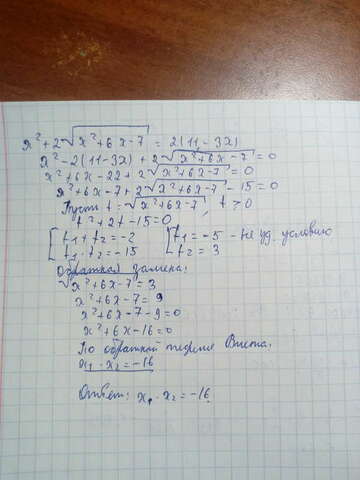 x² + 2√(x²+6x-7) = 2(11-3x)
x² - 2(11-3x) + 2√(x²+6x-7) = 0
x²+6x-22+2√(x²+6x-7) = 0
x²+6x-7+2√(x²+6x-7) -15=0
Пусть t=√(x²+6x-7), t>0
t²+2t-15=0
[t₁+t₂=-2 [t₁=-5 - не уд. условию
[t₁·t₂=-15 [t₂=3
Обратная замена:
√(x²+6x-7)=3
x²+6x-7=9
x²+6x-7-9=0
x²+6x-16=0
По обратной теореме Виета:
x₁·x₂=-16
Ответ: x₁·x₂=-16.